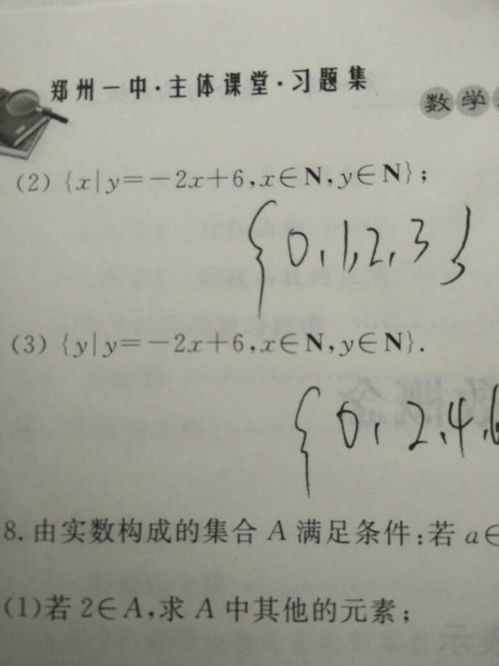 郑州一中·主体课堂·习题集
数学
(2) {x|y=-2x+6,x∈N,y∈N};
{0,1,2,3}
(3) {y|y=-2x+6,x∈N,y∈N}.
{0,2,4,6
8.由实数构成的集合 A 满足条件:若 a∈
(1)若 2∈A,求 A 中其他的元素;
示